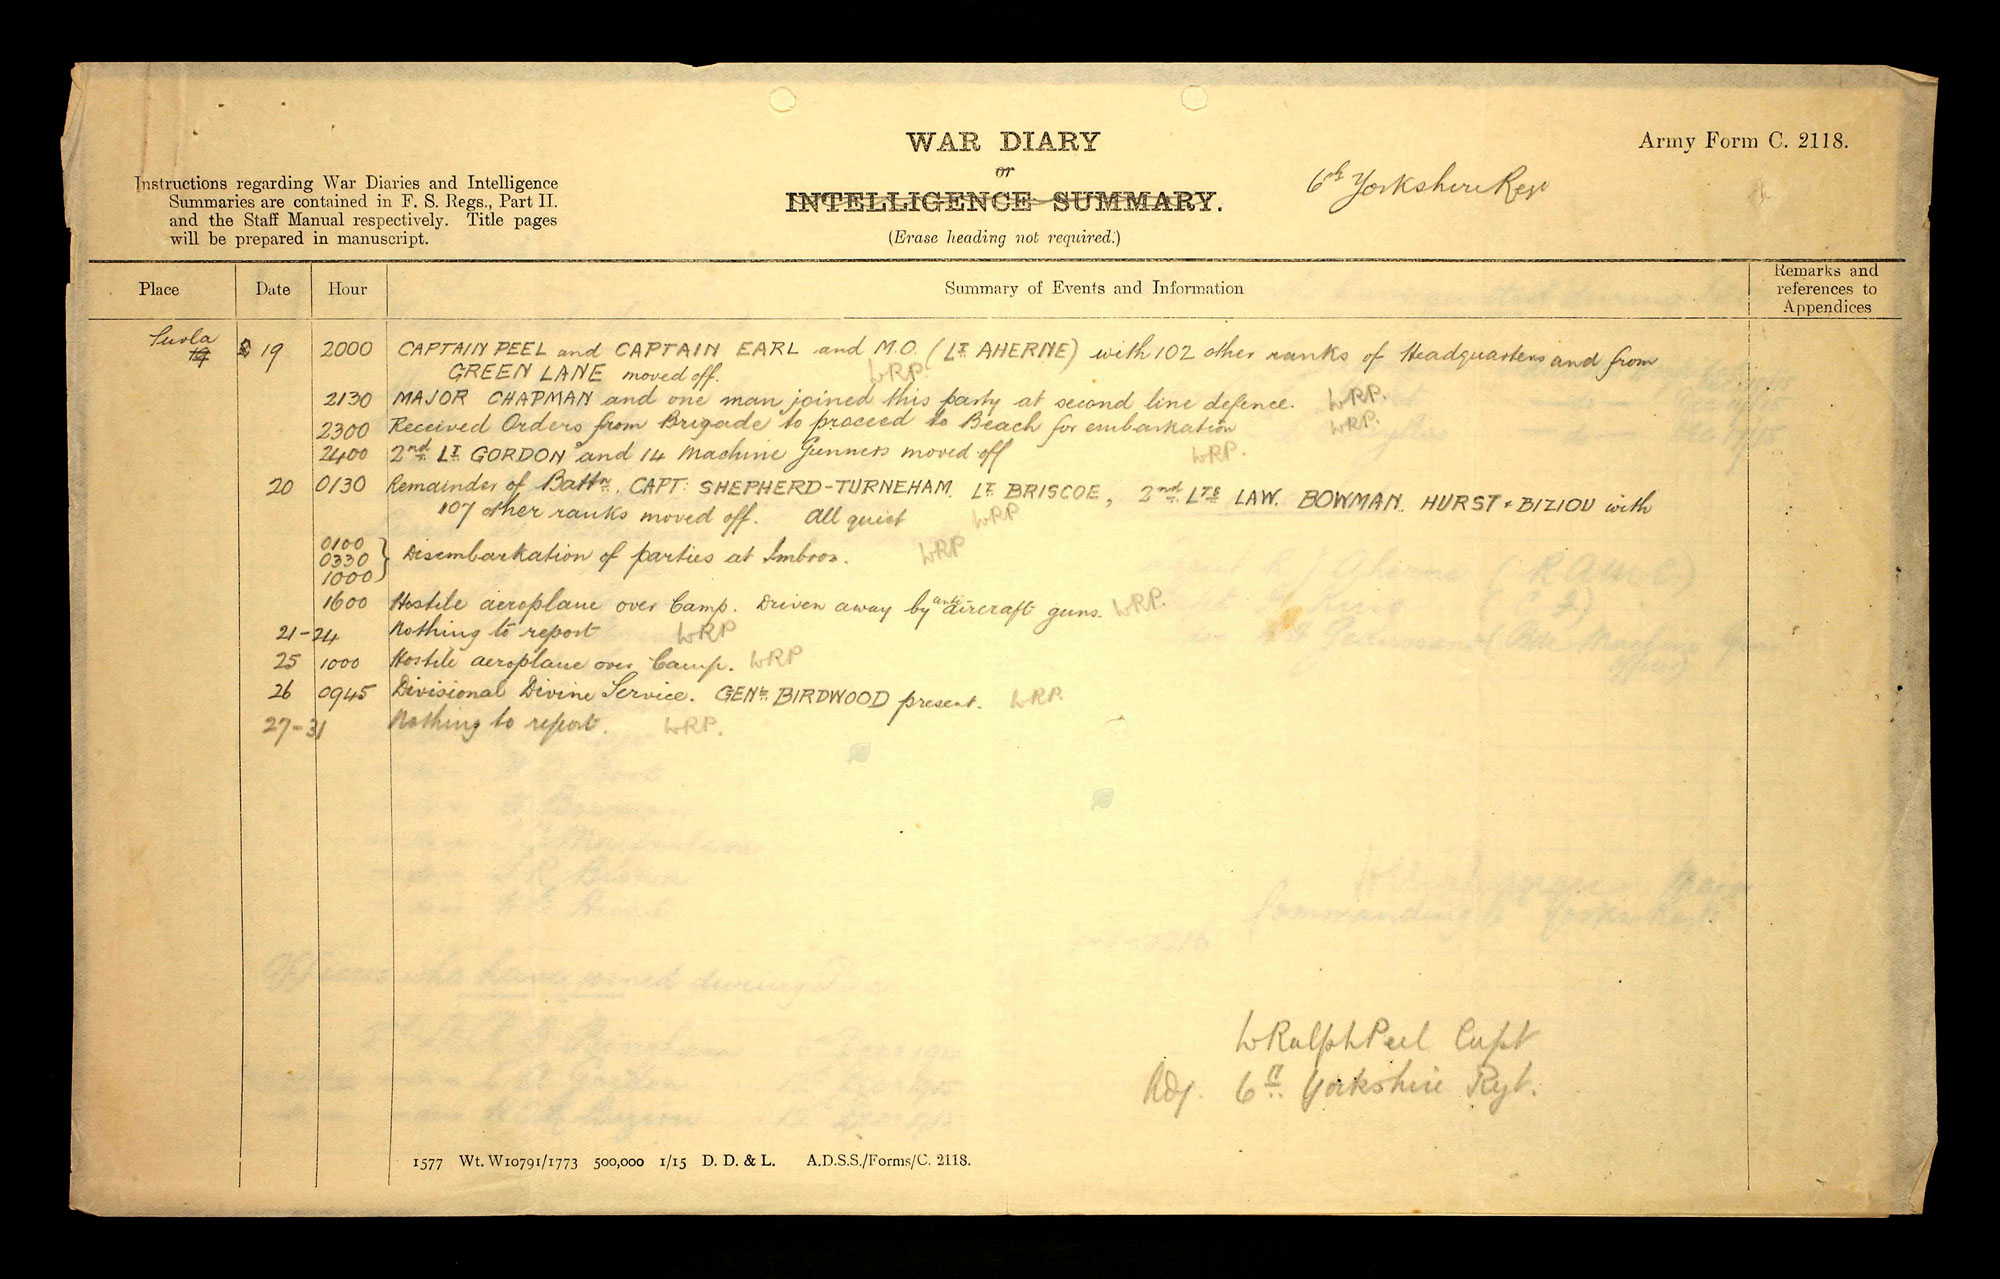 WAR DIARY
or
INTELLIGENCE SUMMARY.
(Erase heading not required.)
Army Form C. 2118.
6th Yorkshire Regt
Instructions regarding War Diaries and Intelligence
Summaries are contained in F. S. Regs., Part II.
and the Staff Manual respectively. Title pages
will be prepared in manuscript.
Place Date Hour Summary of Events and Information Remarks and references to Appendices
Suvla 19 2000 CAPTAIN PEEL and CAPTAIN EARL and M.O. (LT AHERNE) with 102 other ranks of Headquarters and from
GREEN LANE moved off. WRP.
2130 MAJOR CHAPMAN and one man joined this party at second line defence. WRP.
2300 Received Orders from Brigade to proceed to Beach for embarkation WRP.
2400 2nd LT GORDON and 14 Machine Gunners moved off WRP.
20 0130 Remainder of Battn. CAPT. SHEPHERD-TURNEHAM. LT BRISCOE, 2nd LTS LAW. BOWMAN. HURST + BIZIOU with
107 other ranks moved off. All quiet WRP
0100
0330 } Disembarkation of parties at Imbros. WRP
1000
1600 Hostile aeroplane over Camp. Driven away by anti-aircraft guns. WRP.
21-24 Nothing to report WRP
25 1000 Hostile aeroplane over Camp. WRP
26 0945 Divisional Divine Service. GENL. BIRDWOOD present. WRP.
27-31 Nothing to report. WRP.
W Ralph Peel Capt
Adj. 6th Yorkshire Regt.
1577 Wt. W10791/1773 500,000 1/15 D. D. & L. A.D.S.S./Forms/C. 2118.